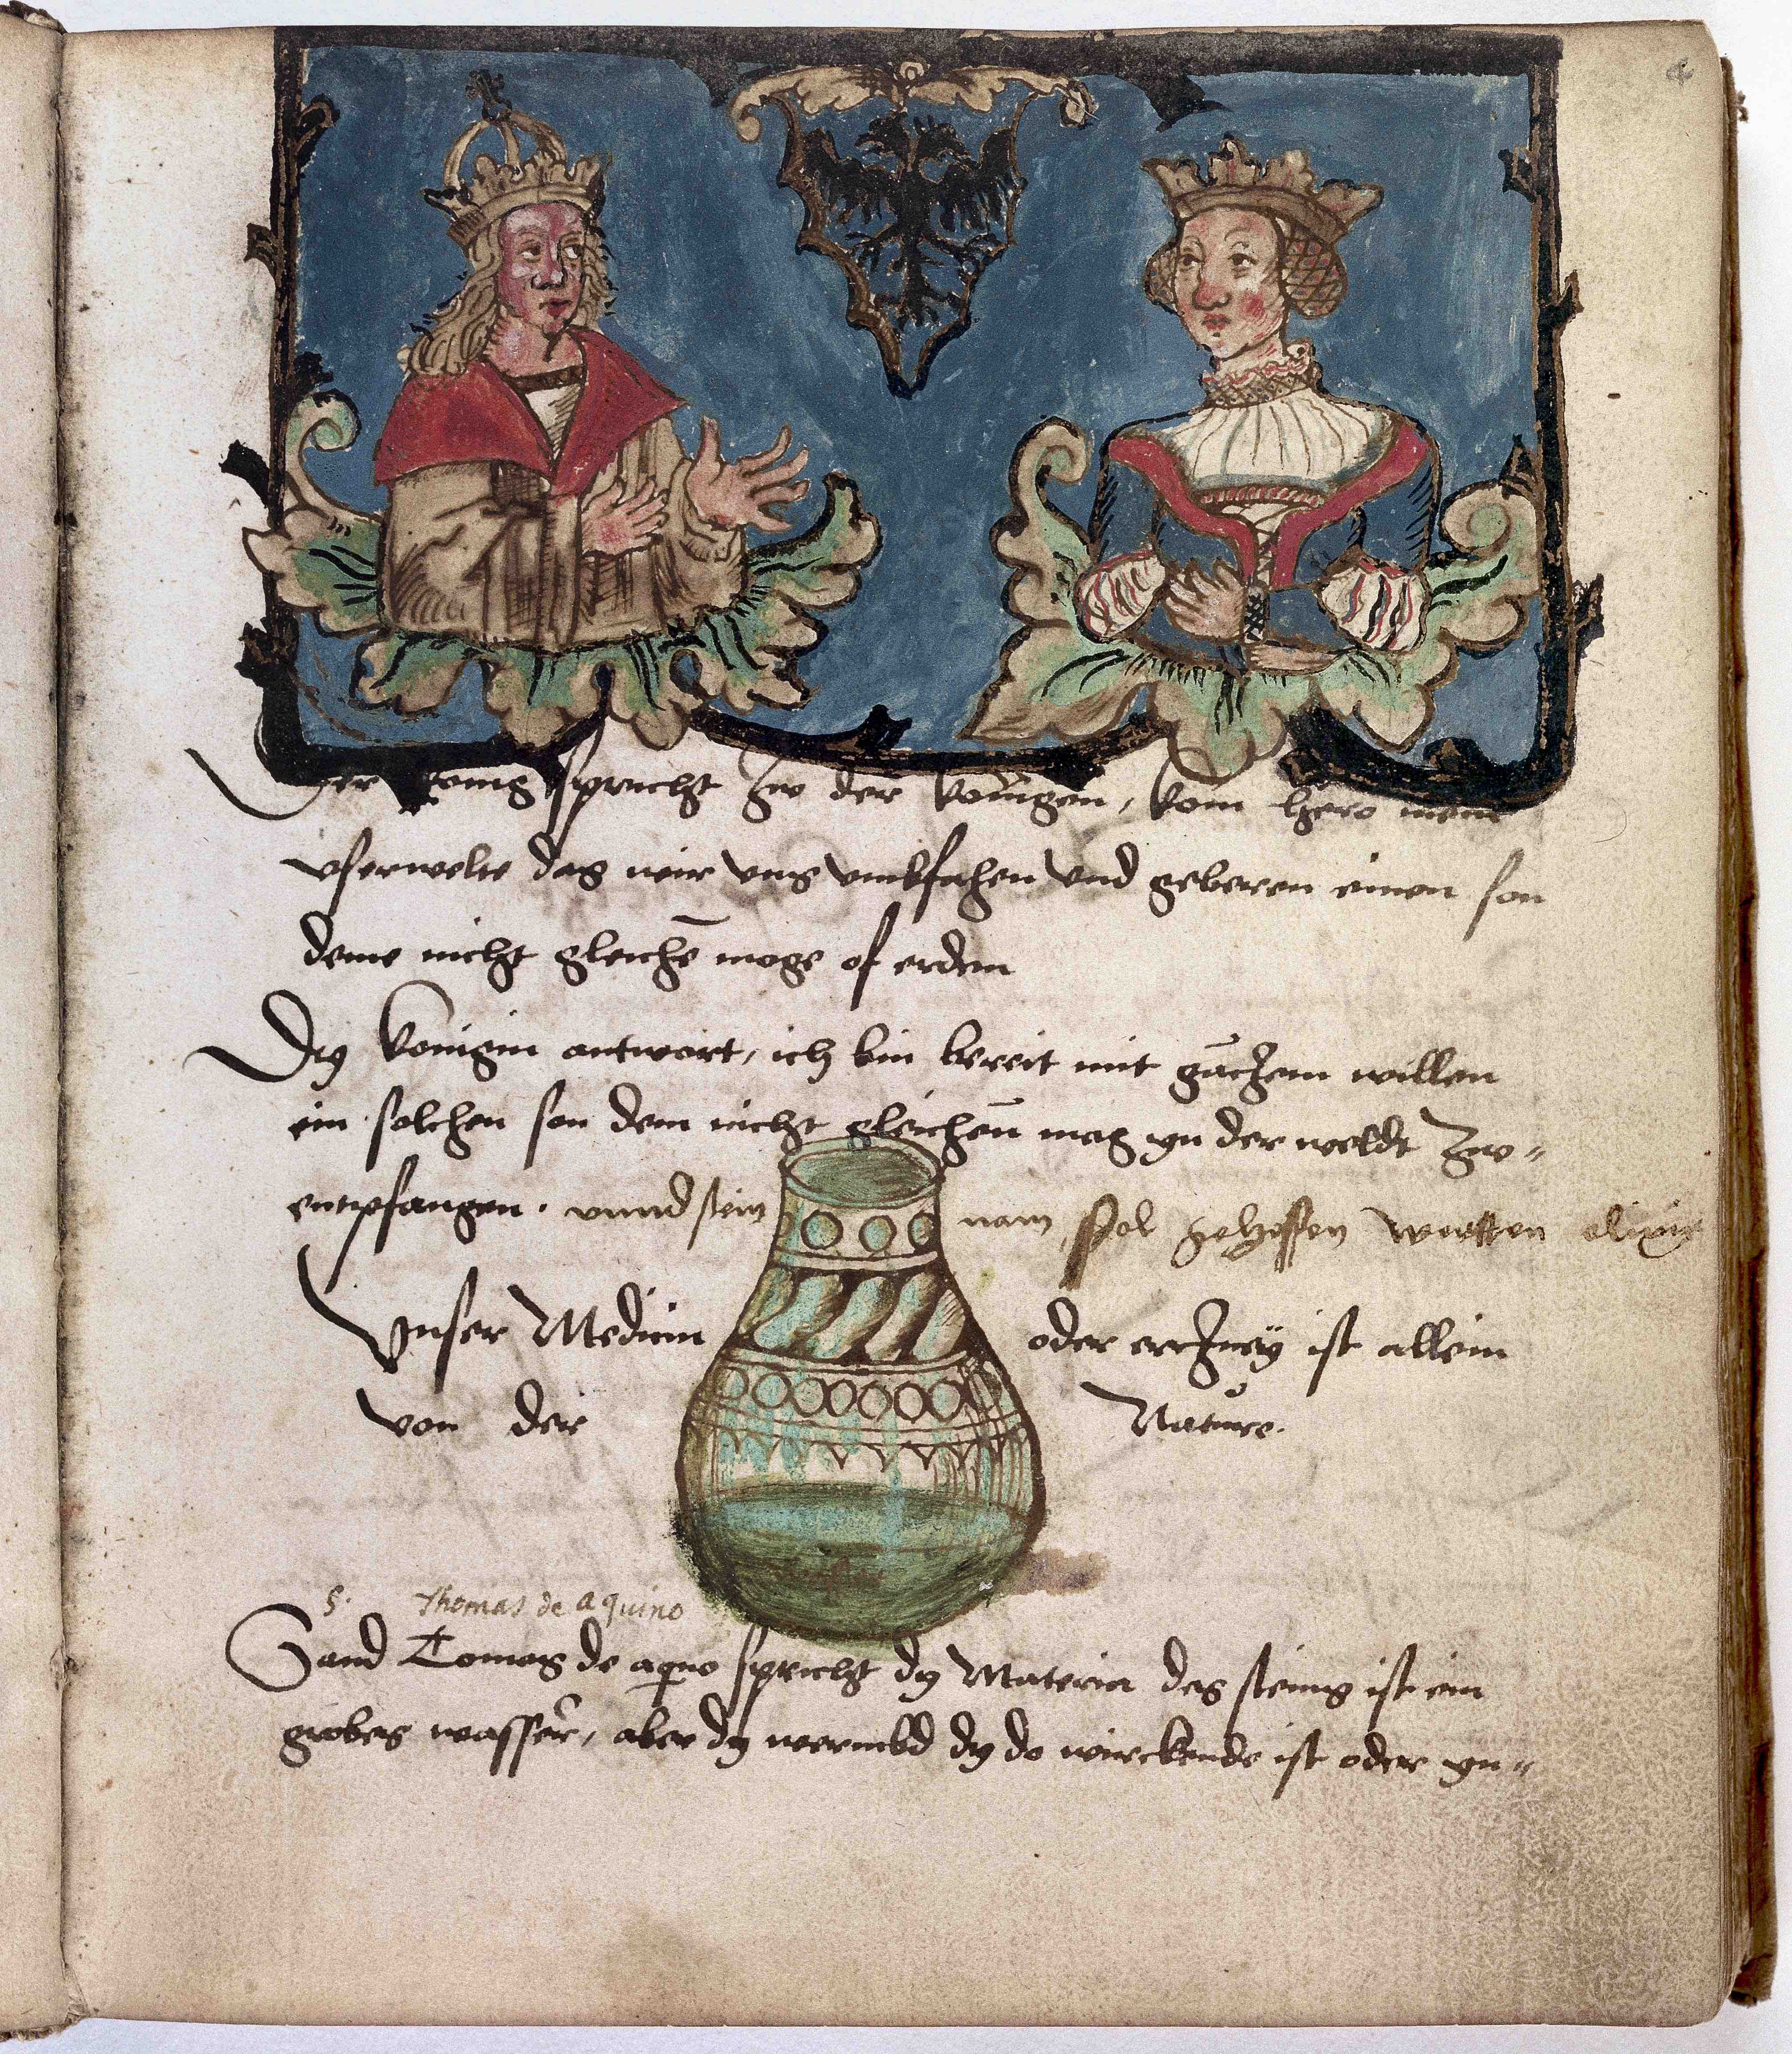 4
Der konig spricht zw der konigen, kom here mein
vserwelte das wir vns vmbfahen vnd geberen einen son
deme nicht gleiche moge of erden
Dy konigin antwort, ich bin bereit mit gāczem willen
ein solchen son dem nicht gleichen mag yn der weldt zw=
entpfangen. vnnd sein nam sol geheissen werden elixir
Vnser Medicin oder erczney ist allein
von der Nature.
S. Thomas de Aquino
Sand Tomas de aquo spricht dy Materia des steins ist ein
grobes wasser, aber dy do wirckende ist oder yn=